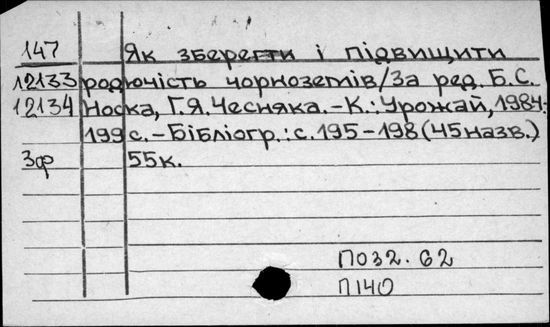 147 Як зберегти і підвищити
12133 родючість чорноземів/За ред. Б.С.
12134 Носка, Г.Я. Чесняка.-К.: Урожай, 1984.
199 с.-Бібліогр.: с. 195-198 (45 назв.)
3ф 55к.
П032.62
П140